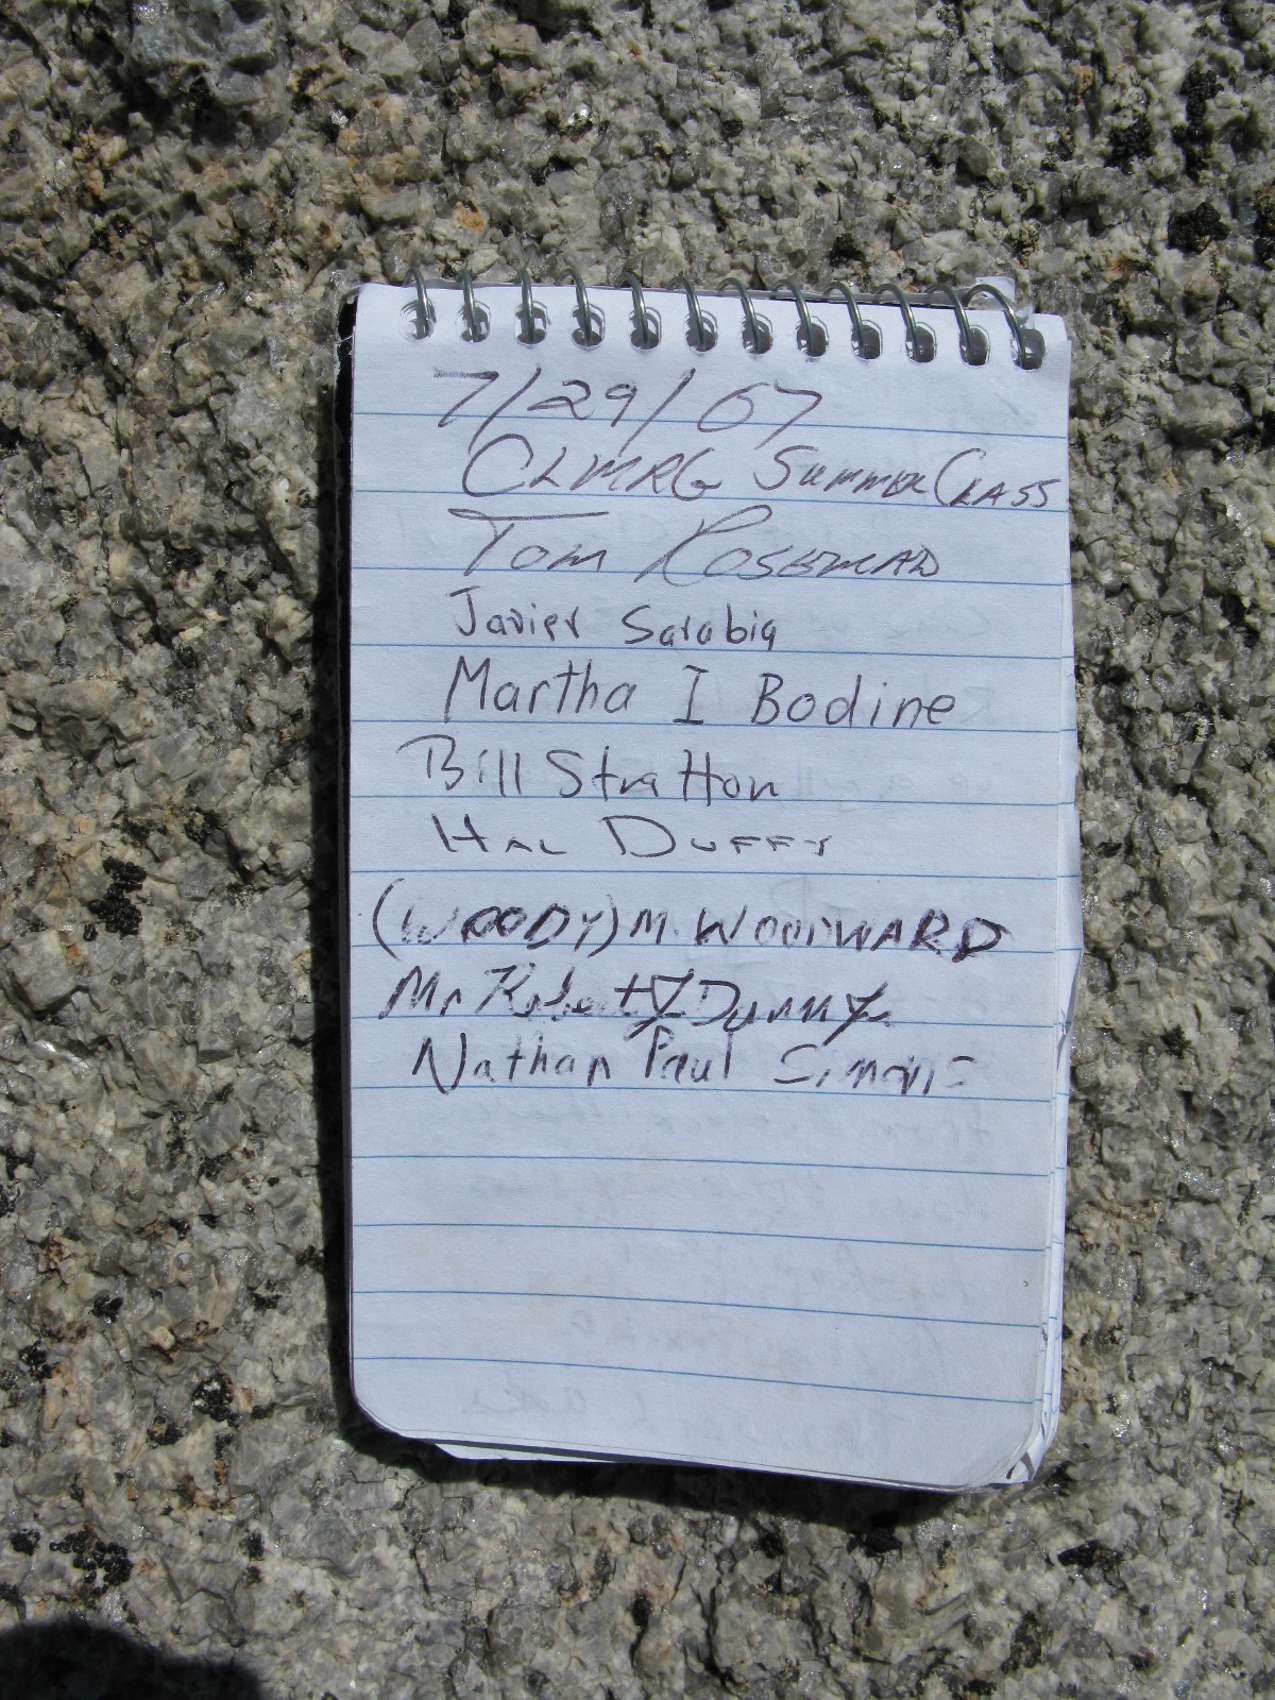 7/29/07
CLMRG SUMMER CLASS
TOM ROSEMEAD
Javier Sarabia
Martha I Bodine
Bill Stratton
HAL DUFFY
(WOODY) M. WOODWARD
Mr Robert
Nathan Paul Simons